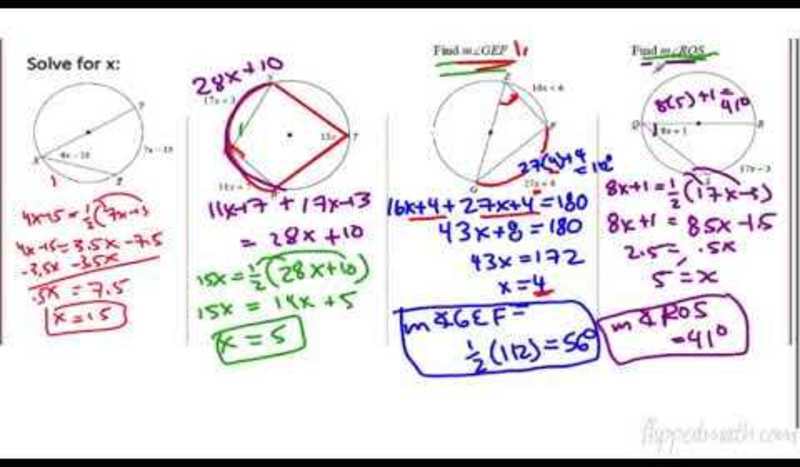 Solve for x:
4x-15 = 1/2 (7x-15
4x-15 = 3.5x-7.5
-3.5x -3.5x
.5x = 7.5
x = 15
28x+10
11x-17 + 17x+3
= 28x+10
15x = 1/2 (28x+10)
15x = 14x + 5
x = 5
Find m∠GEF
27(4)+4
= 112°
16x+4 + 27x+4 = 180
43x+8 = 180
43x = 172
x = 4
m∡GEF =
1/2 (112) = 56°
Find m∠ROS
8(5)+1 =
41°
8x+1
17x-3
8x+1 = 1/2 (17x-3)
8x+1 = 8.5x-1.5
2.5 = .5x
5 = x
m∡ROS
=41°
flippedmath.com